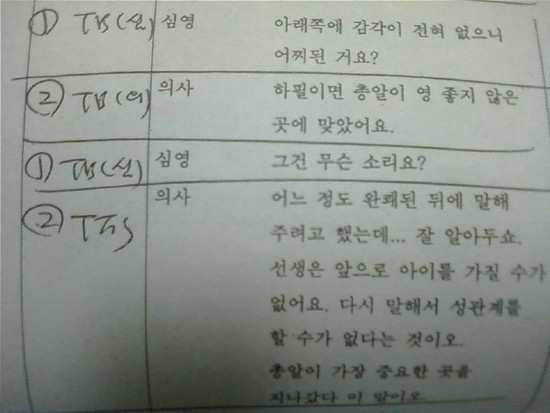 ① TB(심) 심영 아래쪽에 감각이 전혀 없으니
어찌된 거요?
② TB(의) 의사 하필이면 총알이 영 좋지 않은
곳에 맞았어요.
① TB(심) 심영 그건 무슨 소리요?
② TFS 의사 어느 정도 완쾌된 뒤에 말해
주려고 했는데... 잘 알아두쇼.
선생은 앞으로 아이를 가질 수가
없어요. 다시 말해서 성관계를
할 수가 없다는 것이오.
총알이 가장 중요한 곳을
지나갔다 이 말이오.